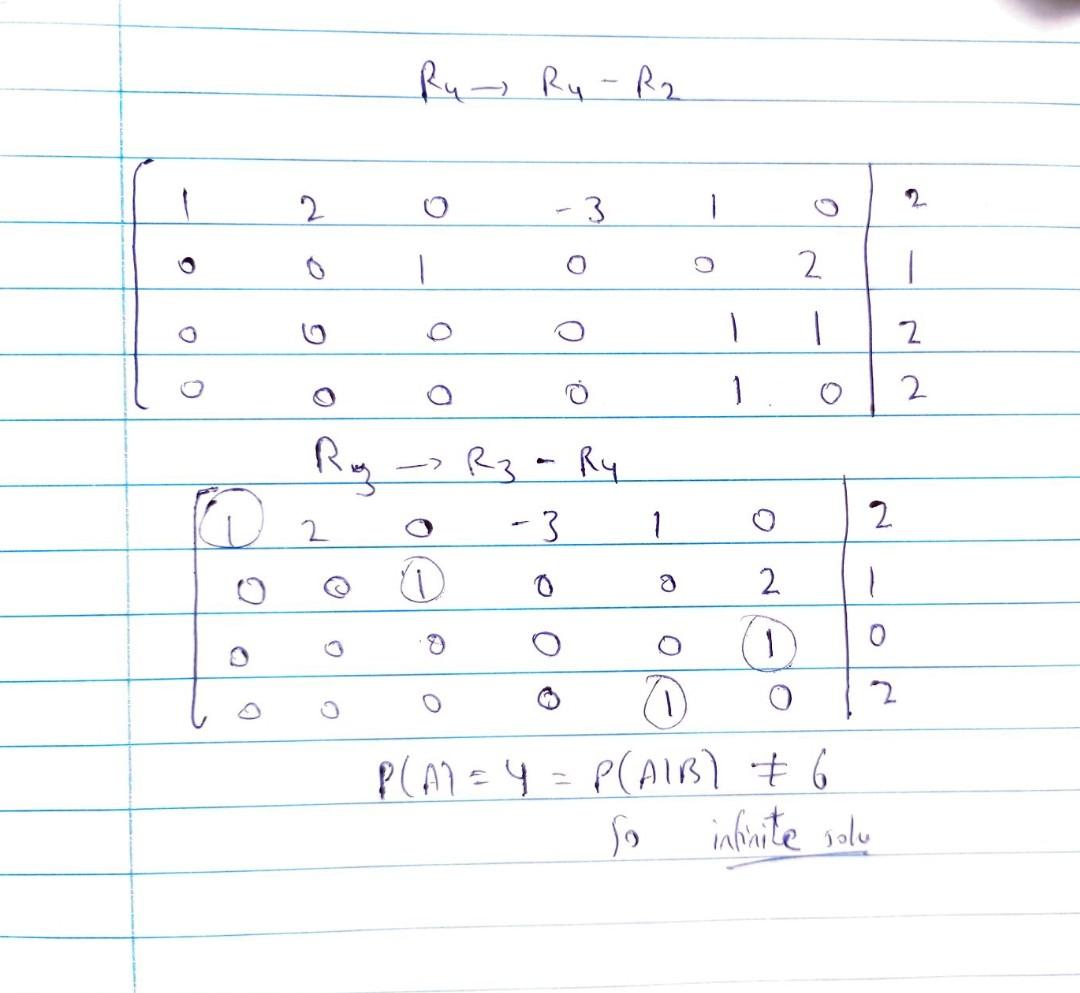 R4 → R4 - R2
1 2 0 -3 1 0 | 2
0 0 1 0 0 2 | 1
0 0 0 0 1 1 | 2
0 0 0 0 1 0 | 2
R3 → R3 - R4
1 2 0 -3 1 0 | 2
0 0 1 0 0 2 | 1
0 0 0 0 0 1 | 0
0 0 0 0 1 0 | 2
P(A) = 4 = P(A|B) ≠ 6
So infinite solu